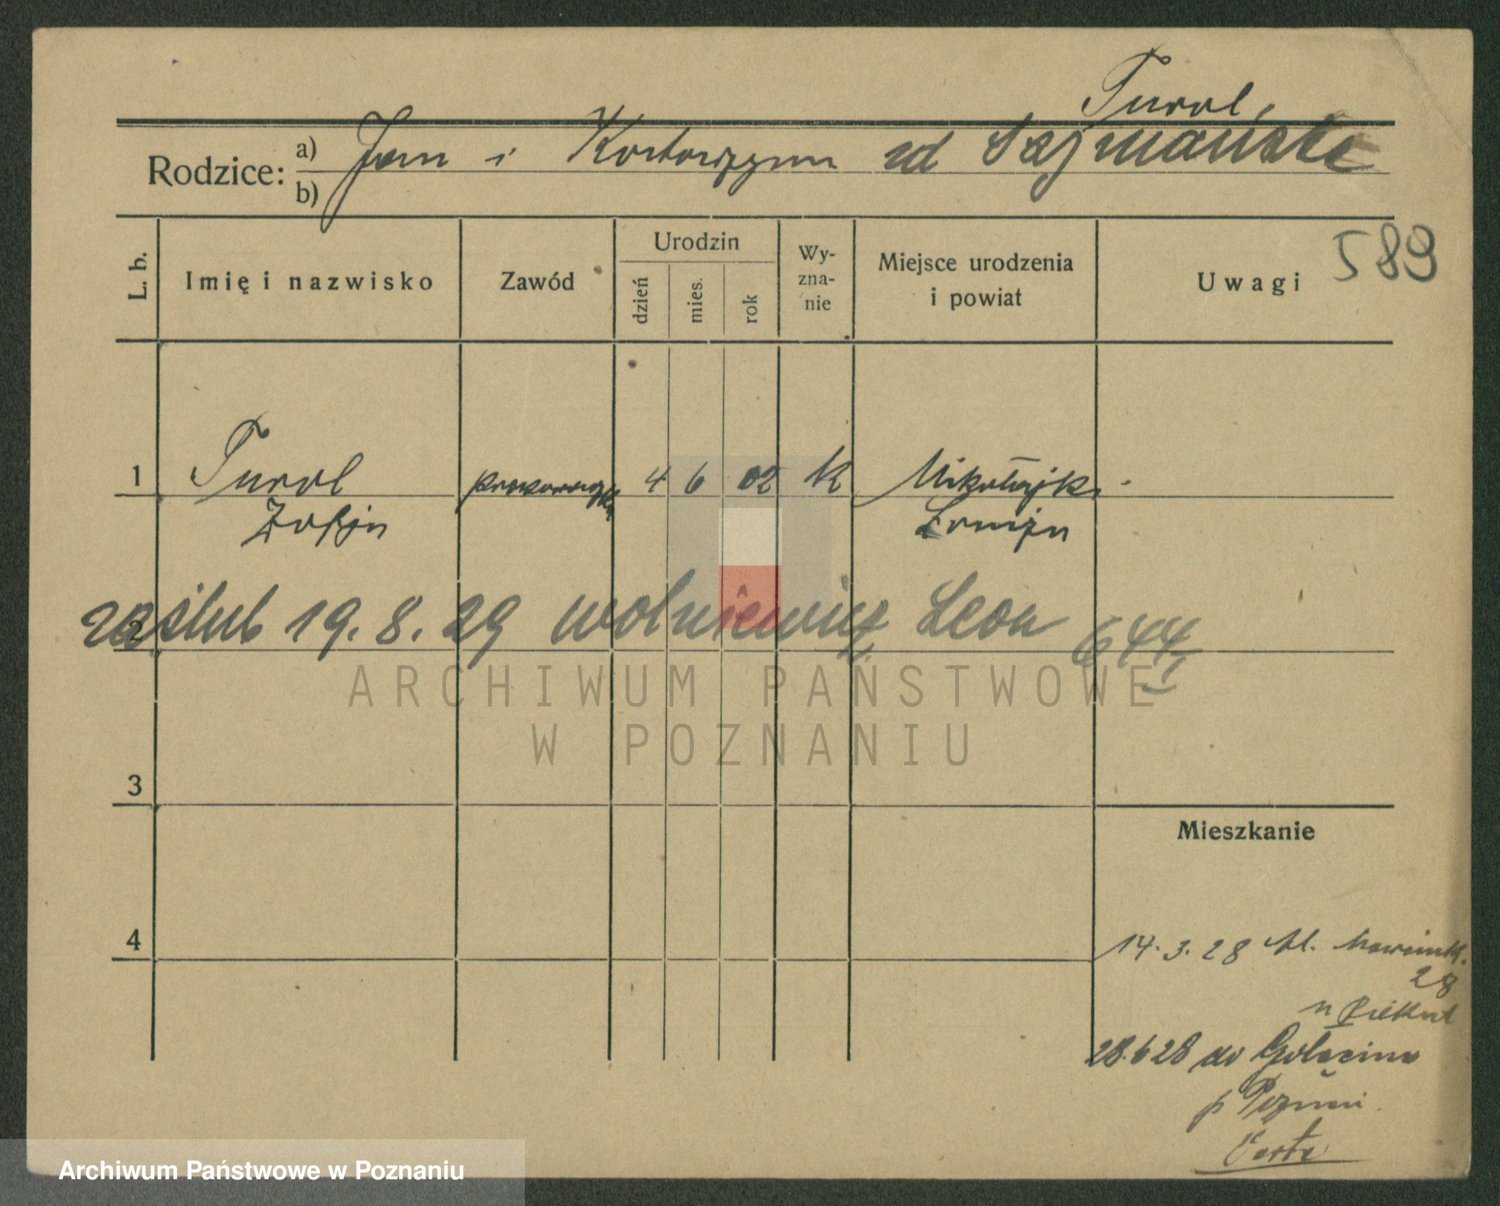 Turol,
Rodzice: a) Jan i Katarzyna zd Szymańska
b)
L. b.
Imię i nazwisko
Zawód
Urodzin
dzień
mies.
rok
Wy-
zna-
nie
Miejsce urodzenia
i powiat
Uwagi
589
1 Turol 4 6 02 k Mikołajki
Zofja Łomża
2 zaślub 19.8.29 Wolniewicz Leon 644
ARCHIWUM PAŃSTWOWE
W POZNANIU
3
Mieszkanie
4 14.3.28
28
28.6.28 do Golęcina
p Pozn.
Archiwum Państwowe w Poznaniu